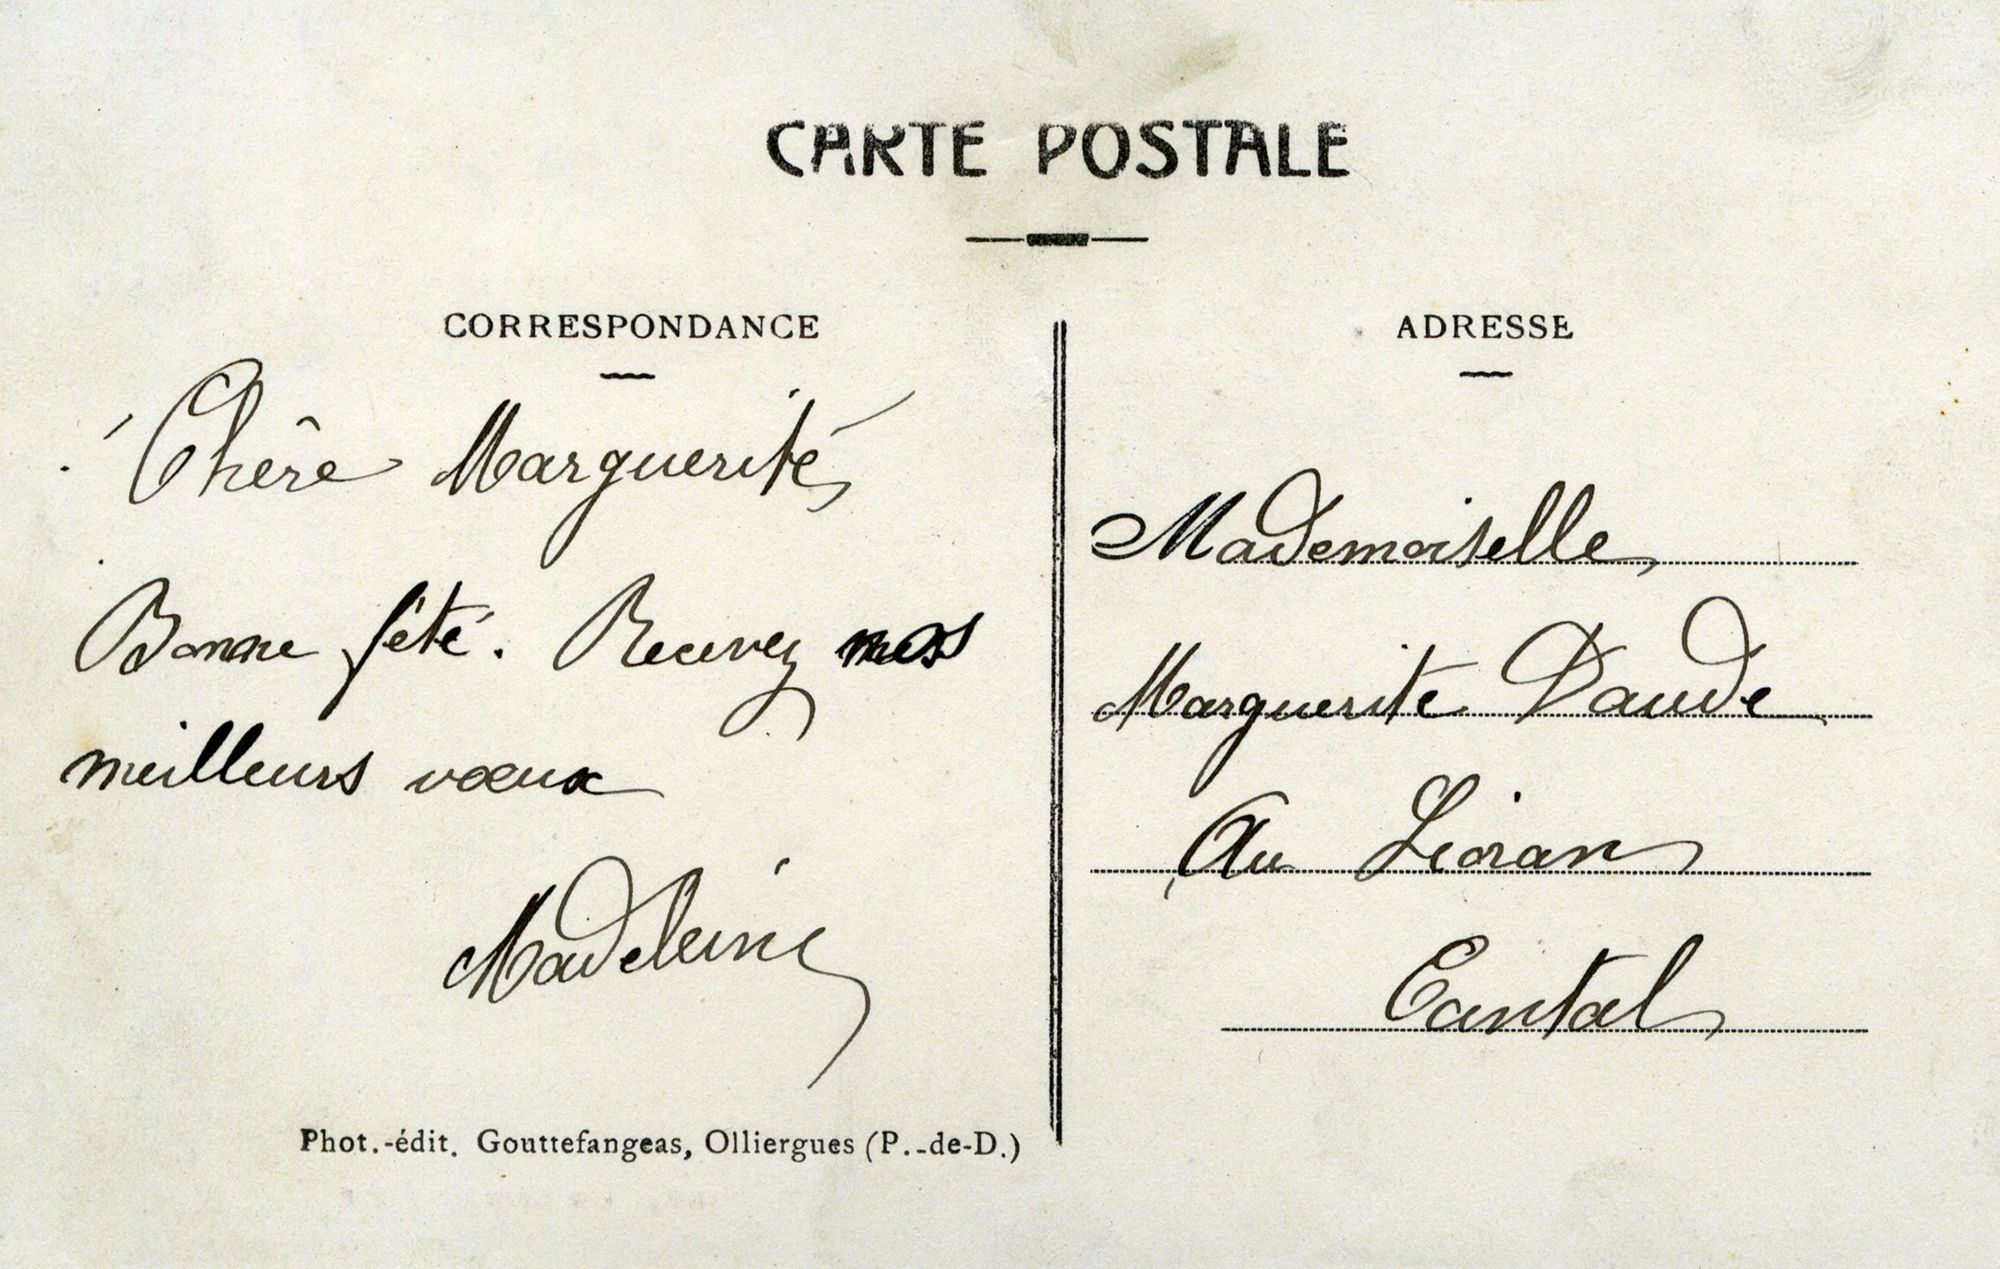 CARTE POSTALE
CORRESPONDANCE
Chère Marguerite,
Bonne fête. Recevez mes
meilleurs vœux
Madeleine
Phot.-édit. Gouttefangeas, Olliergues (P.-de-D.)
ADRESSE
Mademoiselle,
Marguerite Daude
Au Lioran
Cantal